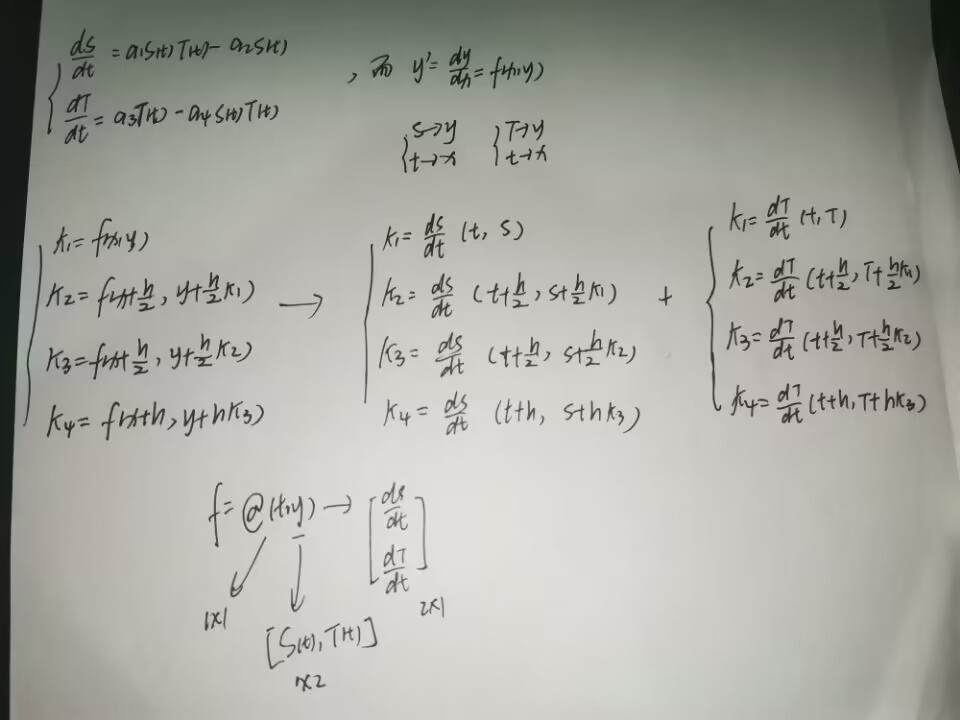 dS/dt = a₁S(t)T(t) - a₂S(t)
dT/dt = a₃T(t) - a₄S(t)T(t)
, 而 y' = dy/dx = f(x,y)
{ S→y { T→y
{ t→x { t→x
K₁ = f(x,y)
K₂ = f(x+h/2, y+h/2 K₁)
K₃ = f(x+h/2, y+h/2 K₂)
K₄ = f(x+h, y+hK₃)
→
K₁ = dS/dt (t, S)
K₂ = dS/dt (t+h/2, S+h/2 K₁)
K₃ = dS/dt (t+h/2, S+h/2 K₂)
K₄ = dS/dt (t+h, S+hK₃)
+
K₁ = dT/dt (t, T)
K₂ = dT/dt (t+h/2, T+h/2 K₁)
K₃ = dT/dt (t+h/2, T+h/2 K₂)
K₄ = dT/dt (t+h, T+hK₃)
f = @(t,y) → [dS/dt
dT/dt]
2×1
1×1
[S(t), T(t)]
1×2